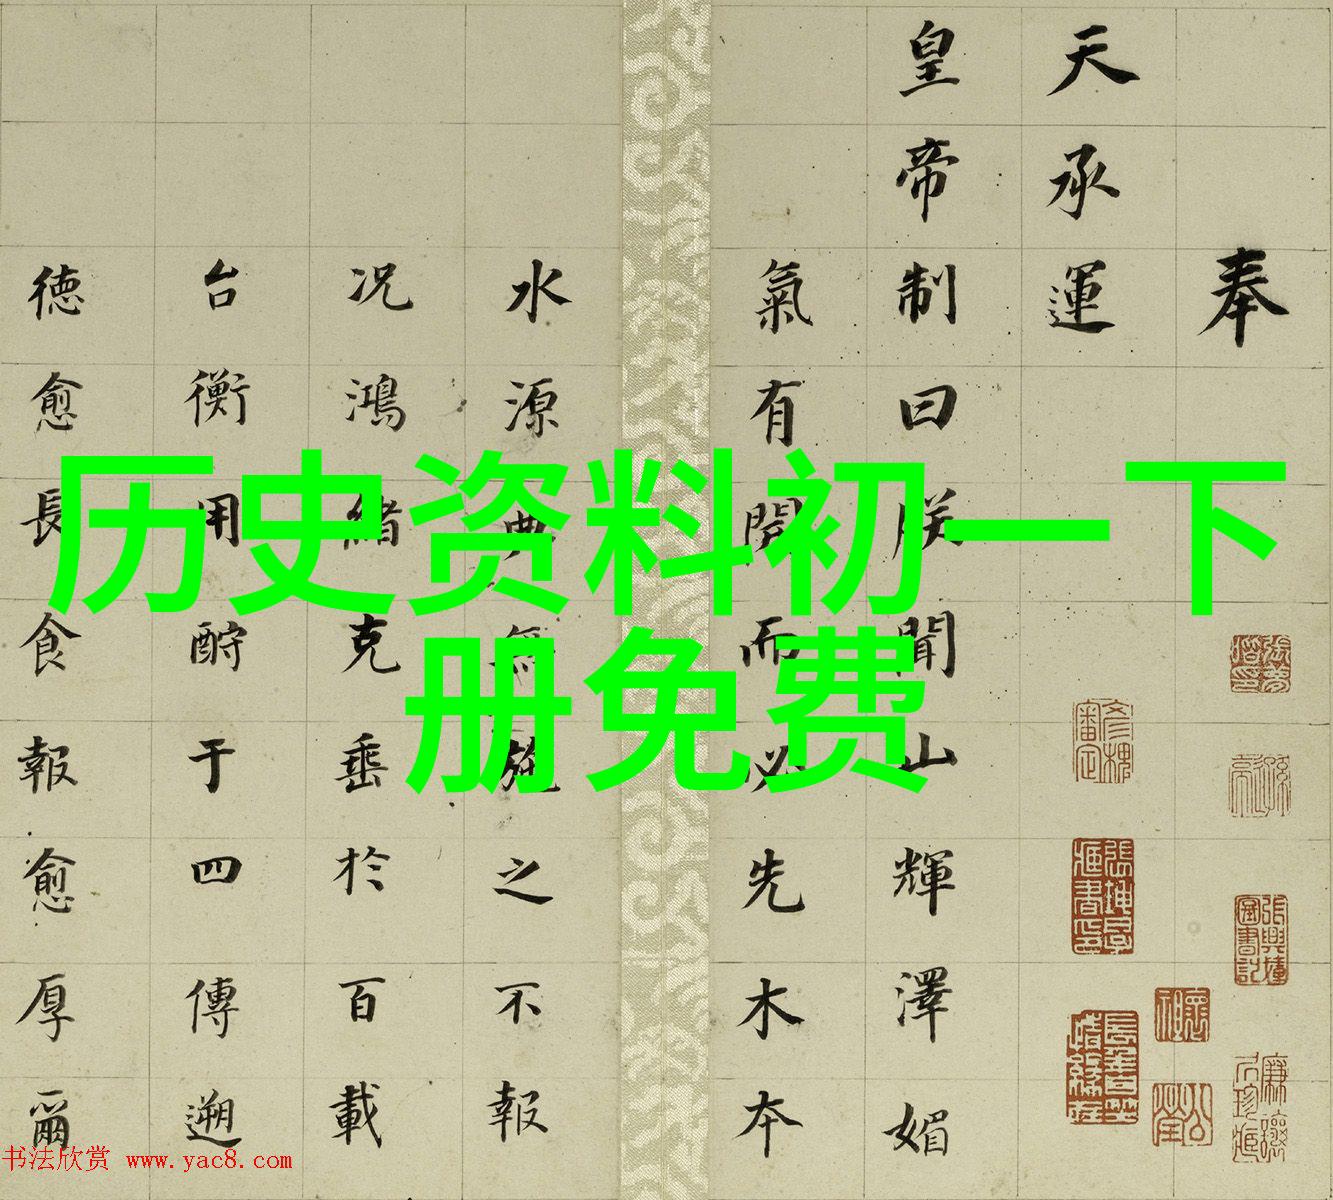 历史资料初一下
册免费
奉
天承運
皇帝制曰朕聞山輝澤媚
氣有開而必先木本
水源典無施之不報
况鴻緒克垂於百載
台衡用酧于四傳遡
德愈長食報愈厚爾
书法欣赏 www.yac8.com